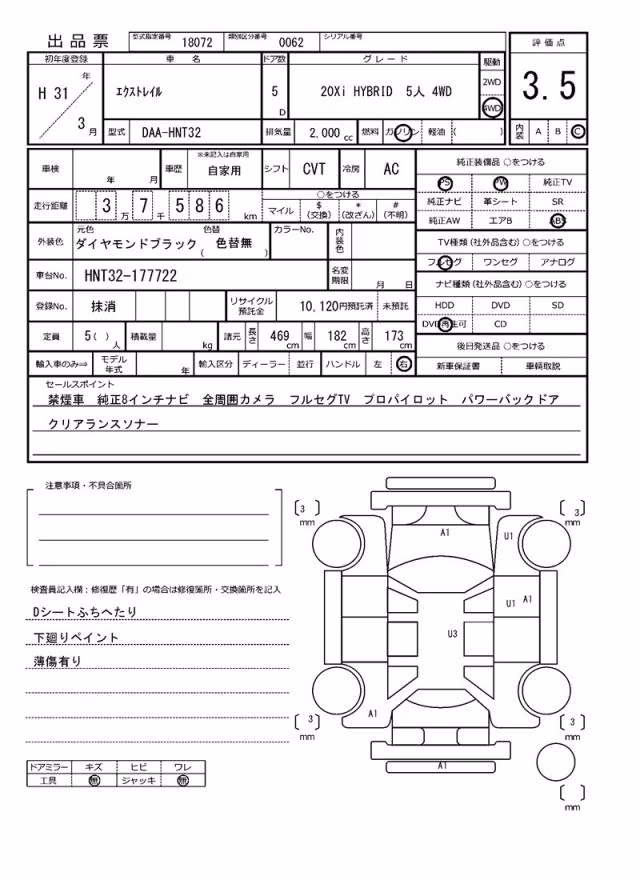 出品票 型式指定番号 18072 類別区分番号 0062 シリアル番号
評価点
3.5
初年度登録 車名 ドア数 グレード 駆動
H 31 年 3 月 エクストレイル 5 D 20Xi HYBRID 5人 4WD 2WD
4WD
型式 DAA-HNT32 排気量 2,000 cc 燃料 ガソリン 軽油 ( ) 内装 A B C
車検 年 月 車歴 ※未記入は自家用 自家用 シフト CVT 冷房 AC
純正装備品 ○をつける
PS PW 純正TV
純正ナビ 革シート SR
純正AW エアB ABS
走行距離 3 万 7 千 586 km
○をつける
マイル $(交換) *(改ざん) #(不明)
外装色 元色 ダイヤモンドブラック 色替 ( 色替無 ) カラーNo. 内装色
TV種類(社外品含む) ○をつける
フルセグ ワンセグ アナログ
車台No. HNT32-177722 名変期限 月 日
ナビ種類(社外品含む) ○をつける
HDD DVD SD
DVD再生可 CD
登録No. 抹消 リサイクル預託金 10,120円預託済 未預託
定員 5( )人 積載量 kg 諸元 長さ 469 cm 幅 182 cm 高さ 173 cm
後日発送品 ○をつける
新車保証書 車輌取説
輸入車のみ⇒ モデル年式 年 輸入区分 ディーラー 並行 ハンドル 左 右
セールスポイント
禁煙車 純正8インチナビ 全周囲カメラ フルセグTV プロパイロット パワーバックドア
クリアランスソナー
注意事項・不具合箇所
検査員記入欄:修復歴「有」の場合は修復箇所・交換箇所を記入
Dシートふちへたり
下廻りペイント
薄傷有り
ドアミラー キズ ヒビ ワレ
工具 無 ジャッキ 無
[3] mm
[3] mm
A1
U1
U1 A1
U3
A1
[3] mm
[3] mm
A1
[ ] mm